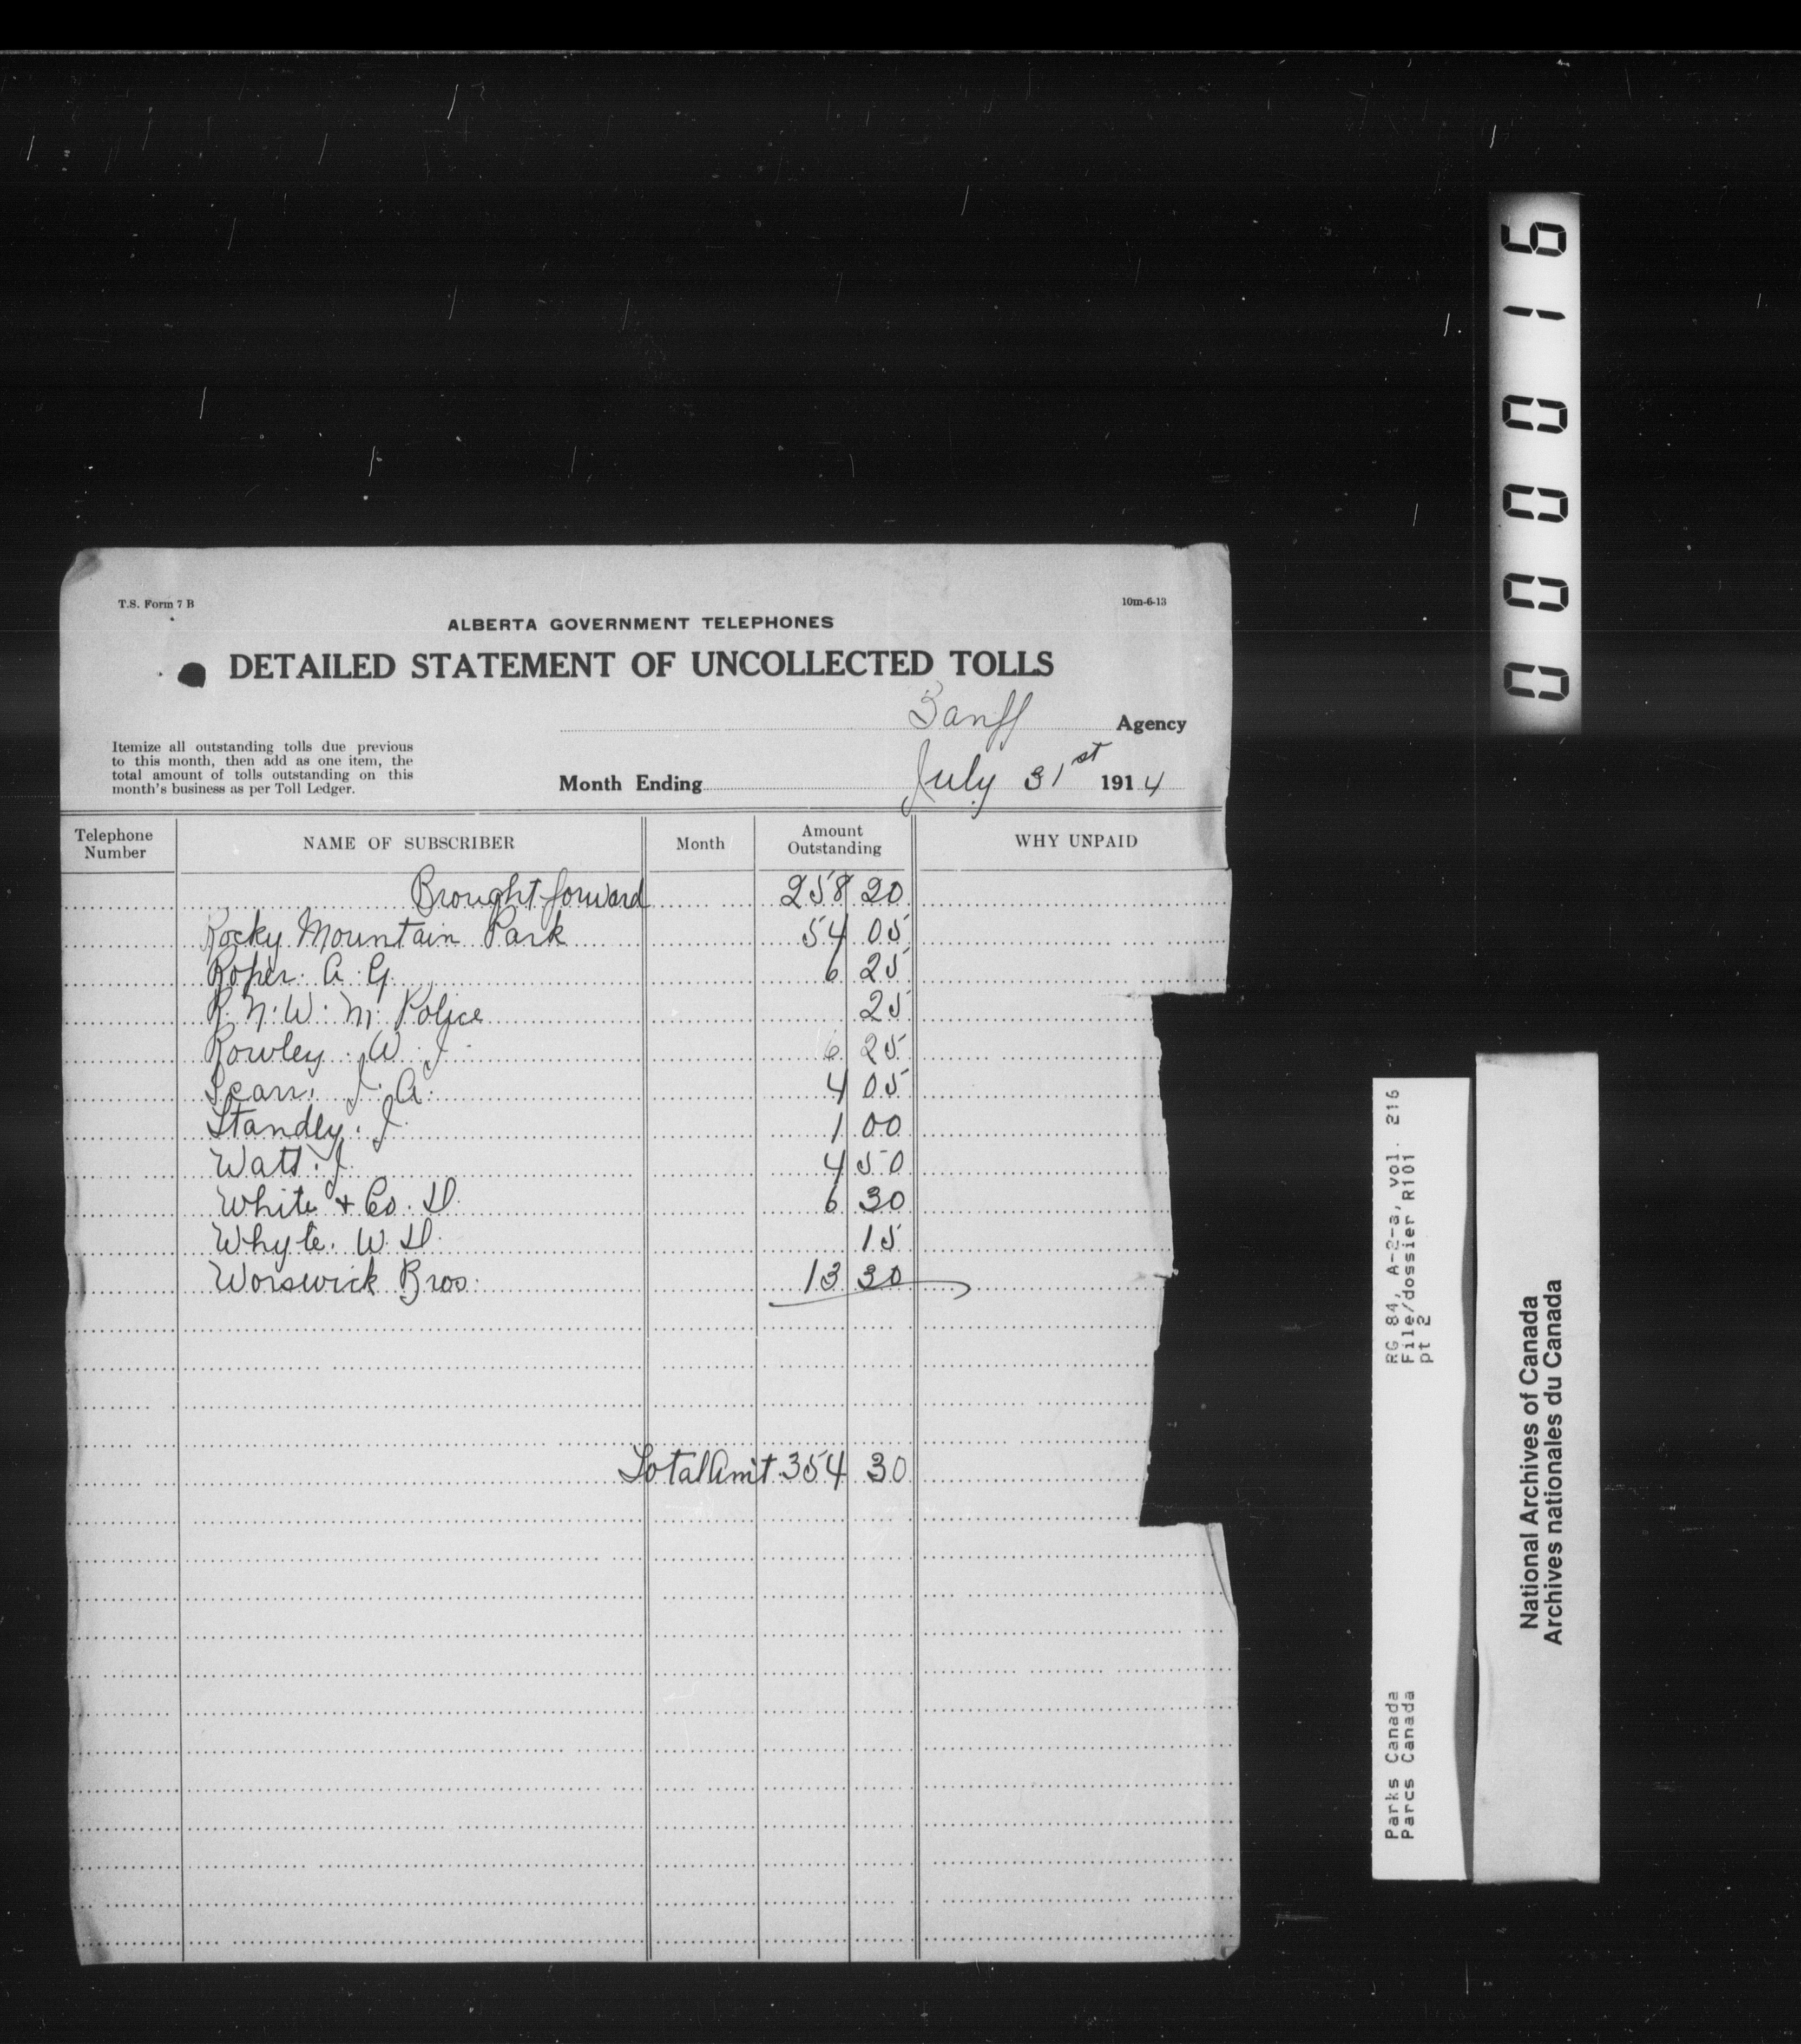 T.S. Form 7 B
10m-6-13
ALBERTA GOVERNMENT TELEPHONES
DETAILED STATEMENT OF UNCOLLECTED TOLLS
Banff Agency
Itemize all outstanding tolls due previous
to this month, then add as one item, the
total amount of tolls outstanding on this
month's business as per Toll Ledger.
Month Ending July 31st 1914
Telephone Number NAME OF SUBSCRIBER Month Amount Outstanding WHY UNPAID
Brought forward 258 20
Rocky Mountain Park 54 05
Roper. A. G. 6 25
R. N. W. M. Police 25
Rowley. W. J. 6 25
J. A. 4 05
Standly. J. 1 00
Watt. J. 4 50
White & Co. D. 6 30
Whyte. W. D. 15
Worswick Bros. 13 30
Total Amt 354 30
000016
RG 84, A-2-a, vol. 216
File/dossier R101
pt 2
Parks Canada
Parcs Canada
National Archives of Canada
Archives nationales du Canada